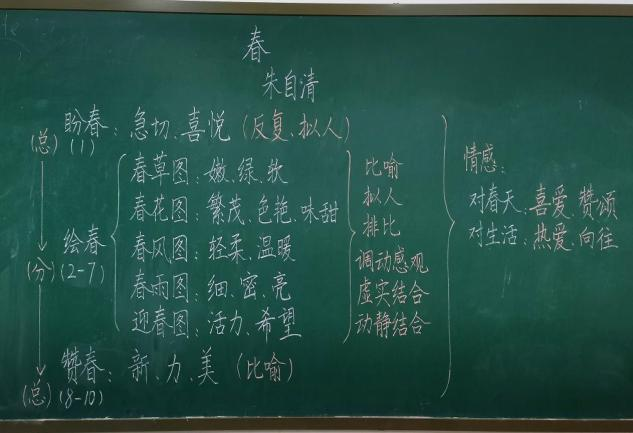 春
朱自清
(总) 盼春：急切、喜悦（反复、拟人）
(1)
春草图：嫩、绿、软
春花图：繁茂、色艳、味甜
春风图：轻柔、温暖
春雨图：细、密、亮
迎春图：活力、希望
(分) 绘春
(2-7)
比喻
拟人
排比
调动感观
虚实结合
动静结合
情感：
对春天：喜爱、赞颂
对生活：热爱、向往
赞春：新、力、美（比喻）
(总) (8-10)